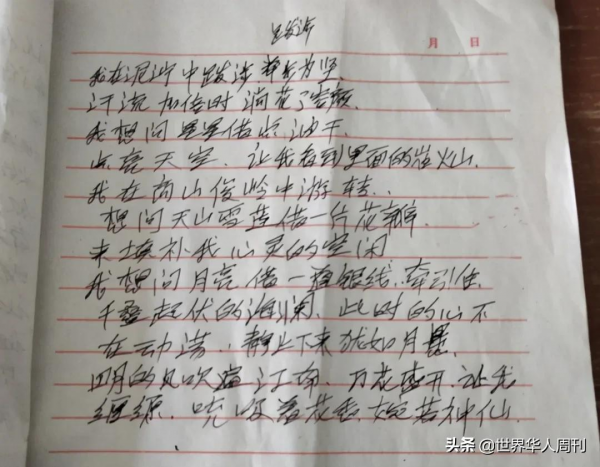 月 日
我在泥泞中跋涉举步为坚
汗流加倍时淌花了容颜
我想问星星借点油干
点亮天空.让我看到里面的岩火山.
我在高山俊岭中游转..
想问天山雪莲借一台花瓣
来填补我心灵的空闲
我想问月亮借一根银线.牵引住
千叠起伏的海澜.此时的心不
在动荡.静止下来犹如月
四月的风吹遍江南.万花盛开.让我
缠绵.吮吸着花香.宛若神仙.
头条 @世界华人周刊